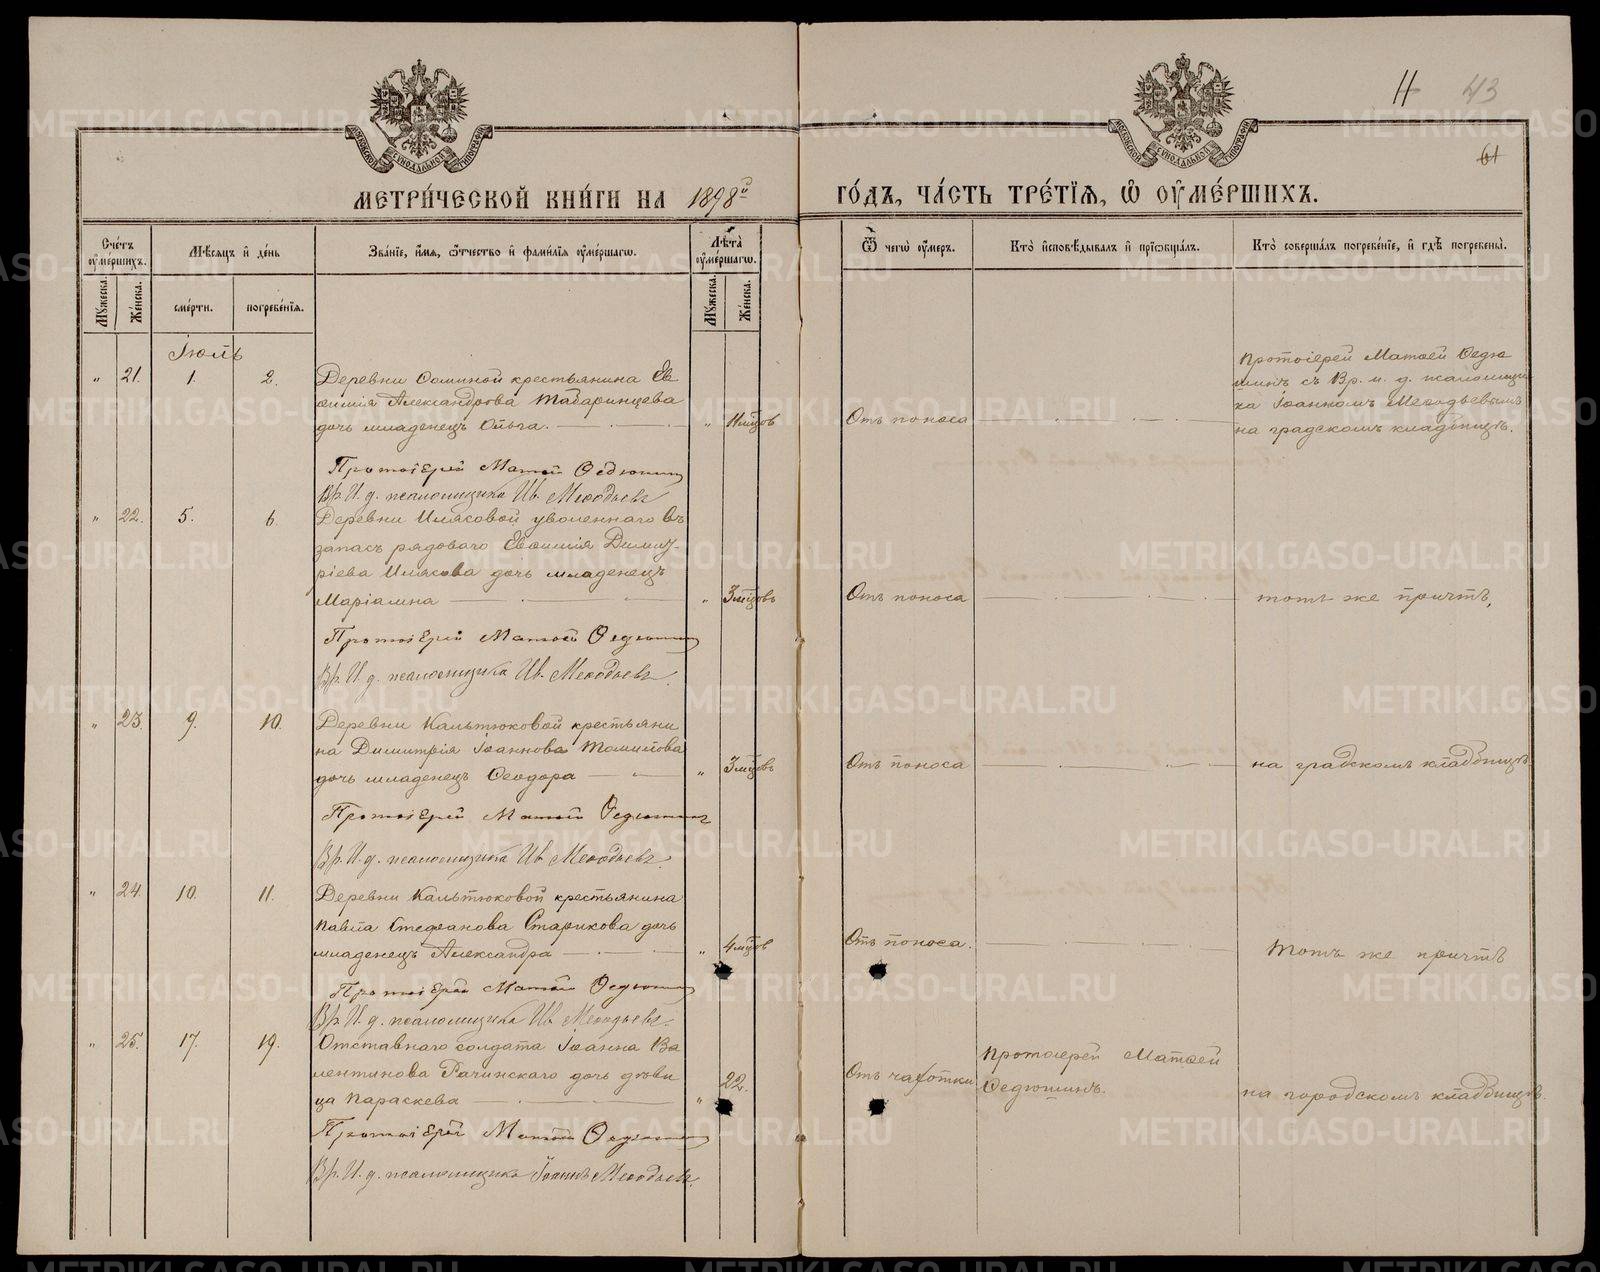 11 43
61
МОСКОВСКОЙ СѴНОДАЛЬНОЙ ТИПОГРАФІИ
МОСКОВСКОЙ СѴНОДАЛЬНОЙ ТИПОГРАФІИ
МЕТРИ́ЧЕСКОЙ КНИ́ГИ НА 1898й ГО́ДЪ, ЧА́СТЬ ТРЕ́ТЇЯ, Ѽ ОУ҆МЕ́РШИХЪ.
Сче́тъ оу҆ме́ршихъ.
Мꙋ́жеска.
Же́нска.
Мѣ́сяцъ и҆ де́нь
сме́рти.
погребе́нїя.
Зва́нїе, и҆́мя, ѻ҆́тчество и҆ фами́лїя оу҆ме́ршагѡ.
Лѣ́та оу҆ме́ршагѡ.
Мꙋ́жеска.
Же́нска.
Ѿ чегѡ̀ оу҆́меръ.
Кто̀ и҆сповѣ́дывалъ и҆ прїѡбща́лъ.
Кто̀ соверша́лъ погребе́нїе, и҆ гдѣ̀ погребены̀.
Іюль
" 21. 1. 2. Деревни Соминой крестьянина Ев
ѳимія Александрова Табаринцева
дочь младенецъ Ольга. " 11 мцов Отъ поноса
Протоіерей Матѳей Ѳедю
шинъ съ Вр. и. д. псаломщи
ка Іоанномъ Меѳодьевымъ
на градскомъ кладбищѣ.
Протоіерей Матѳей Ѳедюшин
Вр. И. д. псаломщика Ив. Меѳодьевъ
" 22. 5. 6. Деревни Илясовой уволеннаго въ
запасъ рядоваго Евѳимія Димит-
ріева Илясова дочь младенецъ
Маріамна " 3 мцовъ Отъ поноса тотъ же причтъ,
Протоіерей Матѳей Ѳедюшин
Вр. И. д. псаломщика Ив. Меѳодьевъ.
" 23. 9. 10. Деревни Кальтюковой крестьяни
на Димитрія Іоаннова Томилова
дочь младенецъ Ѳеодора " 3 мцовъ Отъ поноса на градскомъ кладбищѣ
Протоіерей Матѳей Ѳедюшин
Вр. И. д. псаломщика Ив. Меѳодьевъ.
" 24. 10. 11. Деревни Кальтюковой крестьянина
Павла Стефанова Старикова дочь
младенецъ Александра " 4 мцов Отъ поноса. Тотъ же причтъ
Протоіерей Матѳей Ѳедюшин
Вр. И. д. псаломщика Ив. Меѳодьевъ.
" 25. 17. 19. Отставнаго солдата Іоанна Ва
лентинова Рачинскаго дочь дѣви
ца Параскева " 22. Отъ чахотки
Протоіерей Матѳей
Ѳедюшинъ.
на городскомъ кладбищѣ.
Протоіерей Матѳей Ѳедюшин
Вр. И. д. псаломщика Іоаннъ Меѳодьевъ.
METRIKI.GASO-URAL.RU